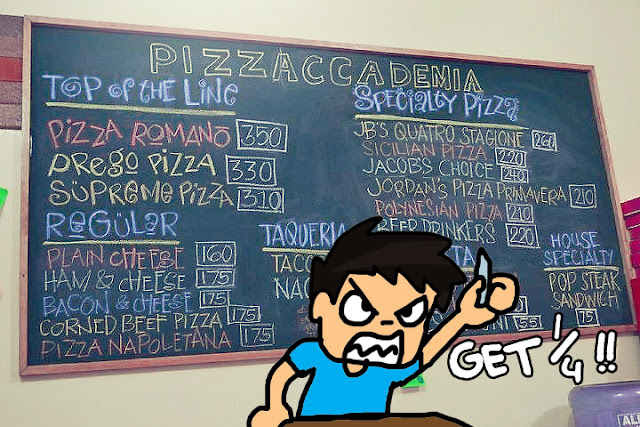 PIZZACCADEMIA
TOP OF THE LINE
PIZZA ROMANO 350
PREGO PIZZA 330
SUPREME PIZZA 310
REGULAR
PLAIN CHEESE 160
HAM & CHEESE 175
BACON & CHEESE 175
CORNED BEEF PIZZA 175
PIZZA NAPOLETANA 175
SPECIALTY PIZZA
JB'S QUATRO STAGIONE 260
SICILIAN PIZZA 220
JACOB'S CHOICE 240
JORDAN'S PIZZA PRIMAVERA 210
POLYNESIAN PIZZA 210
BEER DRINKERS 220
TAQUERIA
HOUSE
SPECIALTY
POP STEAK
SANDWICH
75
GET 1/4 !!